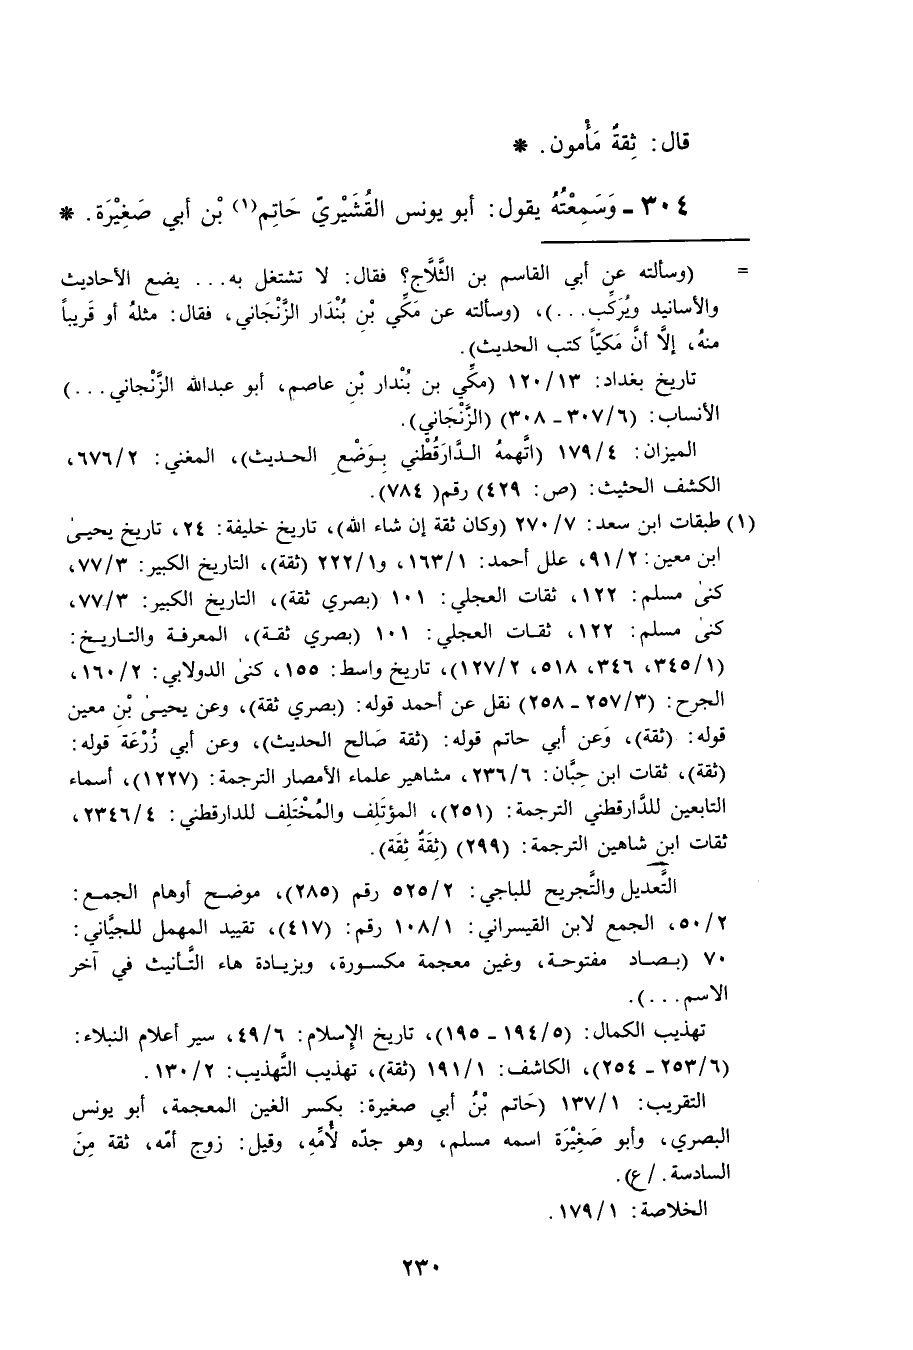 قال: ثِقةٌ مَأْمون. *
٣٠٤ ـ وَسَمِعْتُهُ يقول: أبو يونس القُشَيْريّ حَاتِم(١) بْن أبي صَغِيْرَة. *
= (وسألته عن أبي القاسم بن الثَّلَّاج؟ فقال: لا تشتغل به... يضع الأحاديث
والأسانيد ويُرَكِّب...)، (وسألته عن مَكِّي بْنِ بُنْدَار الزَّنْجَاني، فقال: مثلهُ أو قَريباً
منهُ، إلَّا أنَّ مَكيّاً كتب الحديث).
تاريخ بغداد: ١٣/ ١٢٠ (مكِّي بن بُنْدار بْنِ عاصم، أبو عبدالله الزَّنْجاني...)
الأنساب: (٦/ ٣٠٧ ـ ٣٠٨) (الزَّنْجَاني).
الميزان: ٤/ ١٧٩ (اتَّهمهُ الـدَّارَقُطْني بِـوَضْعِ الحـديث)، المغني: ٢/ ٦٧٦،
الكشف الحثيث: (ص: ٤٢٩) رقم( ٧٨٤).
(١) طبقات ابن سعد: ٧/ ٢٧٠ (وكان ثقة إن شاء الله)، تاريخ خليفة: ٢٤، تاريخ يحيىٰ
ابن معين: ٢/ ٩١، علل أحمد: ١/ ١٦٣، و١/ ٢٢٢ (ثقة)، التاريخ الكبير: ٣/ ٧٧،
كنىٰ مسلم: ١٢٢، ثقات العجلي: ١٠١ (بصري ثقة)، التاريخ الكبير: ٣/ ٧٧،
كنىٰ مسلم: ١٢٢، ثقـات العجلي: ١٠١ (بصري ثقـة)، المعرفـة والتـاريـخ:
(١/ ٣٤٥، ٣٤٦، ٥١٨، ٢/ ١٢٧)، تاريخ واسط: ١٥٥، كنىٰ الدولابي: ٢/ ١٦٠،
الجرح: (٣/ ٢٥٧ ـ ٢٥٨) نقل عن أحمد قوله: (بصري ثقة)، وعن يحيىٰ بْنِ معين
قوله: (ثقة)، وَعن أبي حاتم قوله: (ثقة صَالح الحديث)، وعن أبي زُرْعَة قوله:
(ثقة)، ثقات ابن حِبَّان: ٦/ ٢٣٦، مشاهير علماء الأمصار الترجمة: (١٢٢٧)، أسماء
التابعين للدَّارقطني الترجمة: (٢٥١)، المؤتَلِف والمُخْتَلِف للدارقطني: ٤/ ٢٣٤٦،
ثقات ابن شاهين الترجمة: (٢٩٩) (ثِقَةٌ ثِقَة).
التَّعديل والتَّجريح للباجي: ٢/ ٥٢٥ رقم (٢٨٥)، موضـح أوهام الجمـع:
٢/ ٥٠، الجمع لابن القيسراني: ١/ ١٠٨ رقم: (٤١٧)، تقييد المهمل للجيَّاني:
٧٠ (بـصـاد مفتوحـة، وغين معجمة مكسـورة، وبـزيـادة هاء التَّأنيث في آخر
الاسم...).
تهذيب الكمال: (٥/ ١٩٤ ـ ١٩٥)، تاريخ الإسلام: ٦/ ٤٩، سير أعلام النبلاء:
(٦/ ٢٥٣ ـ ٢٥٤)، الكاشف: ١/ ١٩١ (ثقة)، تهذيب التَّهذيب: ٢/ ١٣٠.
التقريب: ١/ ١٣٧ (حَاتم بْنُ أبي صغيرة: بكسر الغين المعجمة، أبو يونس
البصري، وأبو صَغِيْرَة اسمه مسلم، وهو جدّه لأُمِّهِ، وقيل: زوج أمّه، ثقة مِنَ
السادسة. /ع).
الخلاصة: ١/ ١٧٩.
٢٣٠